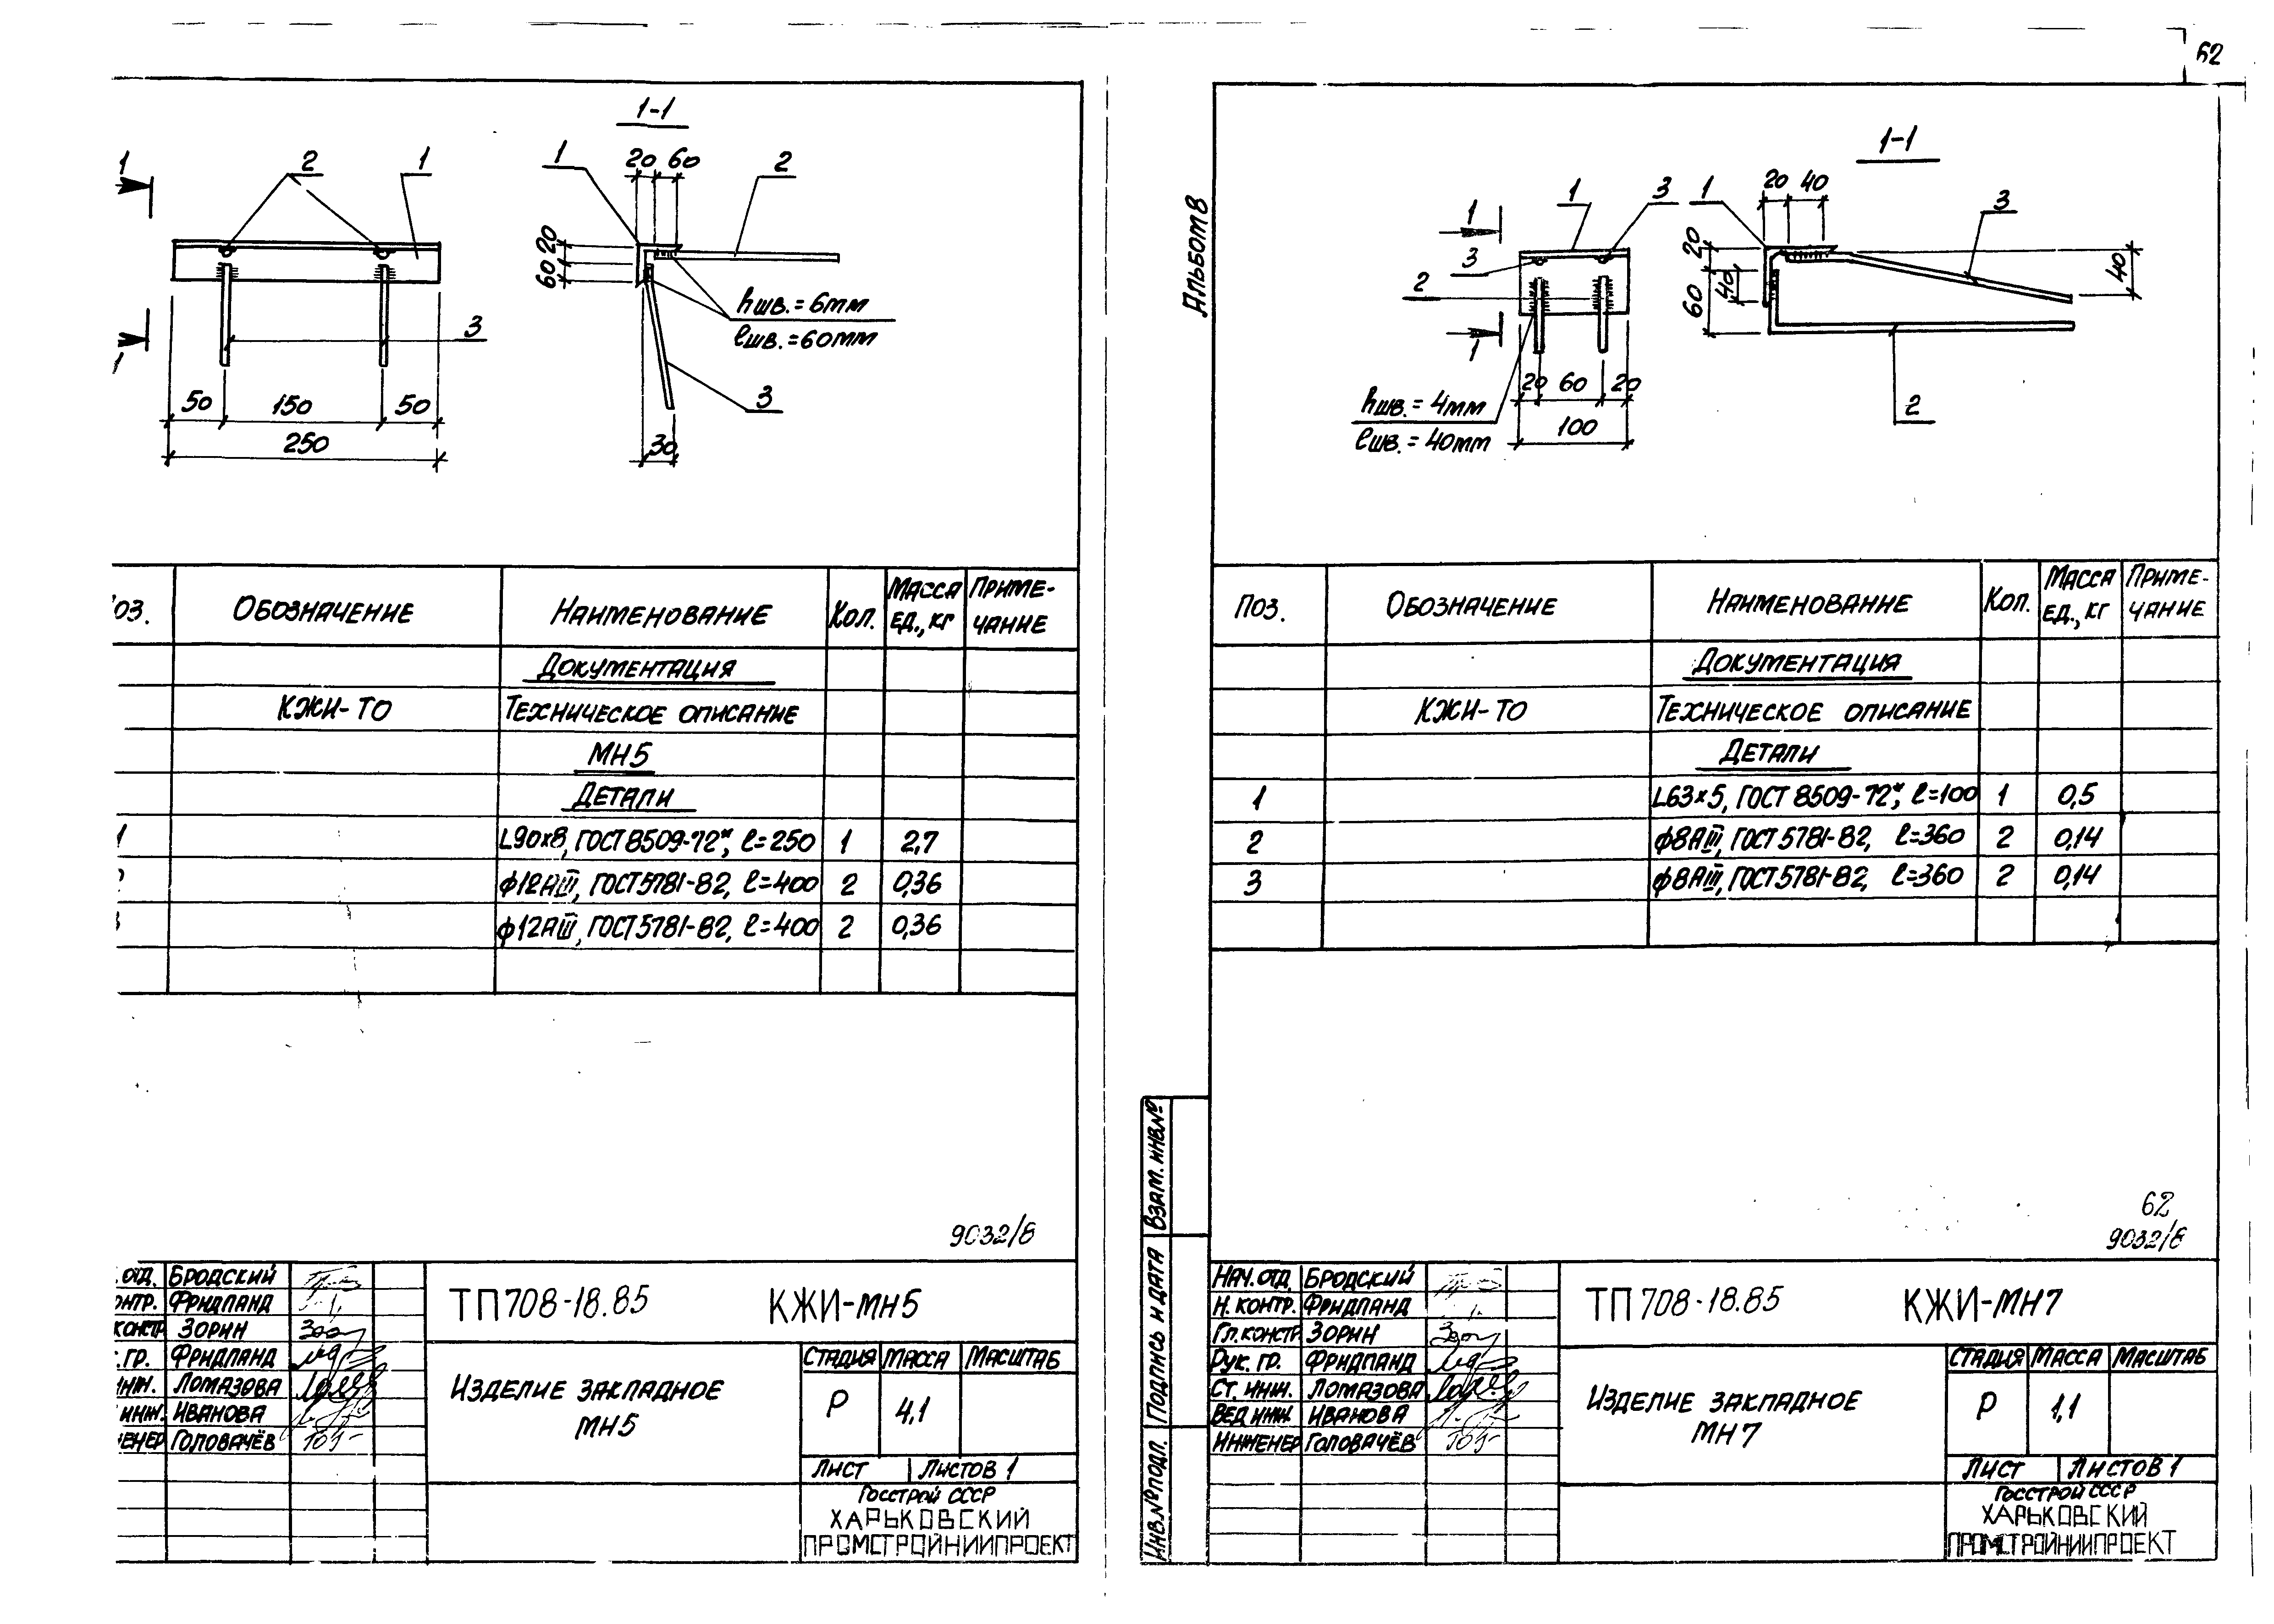 62
1-1
1
2
1
1
20
60
2
20
60
hшв.=6мм
ℓшв.=60мм
3
3
1
50
150
50
250
30
ОЗ.
ОБОЗНАЧЕНИЕ
НАИМЕНОВАНИЕ
КОЛ.
МАССА ЕД., КГ
ПРИМЕ-
ЧАНИЕ
ДОКУМЕНТАЦИЯ
КЖИ-ТО
ТЕХНИЧЕСКОЕ ОПИСАНИЕ
МН5
ДЕТАЛИ
1 L90×8, ГОСТ 8509-72*, ℓ=250 1 2,7
ϕ12АIII, ГОСТ 5781-82, ℓ=400 2 0,36
ϕ12АIII, ГОСТ 5781-82, ℓ=400 2 0,36
9032/8
. ОТД. БРОДСКИЙ
ОНТР. ФРИДЛАНД
КОНСТР. ЗОРИН
. ГР. ФРИДЛАНД
ИНЖ. ЛОМАЗОВА
ИНЖ. ИВАНОВА
ЕНЕР ГОЛОВАЧЁВ
ТП 708-18.85 КЖИ-МН5
ИЗДЕЛИЕ ЗАКЛАДНОЕ
МН5
СТАДИЯ МАССА МАСШТАБ
Р 4,1
ЛИСТ ЛИСТОВ 1
ГОССТРОЙ СССР
ХАРЬКОВСКИЙ
ПРОМСТРОЙНИИПРОЕКТ
Альбом 8
1-1
1
1
3
1
20
40
3
3
2
20
60
40
40
1
20
60
20
100
hшв.=4мм
ℓшв.=40мм
2
ПОЗ.
ОБОЗНАЧЕНИЕ
НАИМЕНОВАНИЕ
КОЛ.
МАССА ЕД., КГ
ПРИМЕ-
ЧАНИЕ
ДОКУМЕНТАЦИЯ
КЖИ-ТО
ТЕХНИЧЕСКОЕ ОПИСАНИЕ
ДЕТАЛИ
1 L63×5, ГОСТ 8509-72*, ℓ=100 1 0,5
2 ϕ8АIII, ГОСТ 5781-82, ℓ=360 2 0,14
3 ϕ8АIII, ГОСТ 5781-82, ℓ=360 2 0,14
62
9032/8
ИНВ.№ПОДЛ. ПОДПИСЬ И ДАТА ВЗАМ. ИНВ.№
НАЧ. ОТД. БРОДСКИЙ
Н. КОНТР. ФРИДЛАНД
ГЛ. КОНСТР. ЗОРИН
РУК. ГР. ФРИДЛАНД
СТ. ИНЖ. ЛОМАЗОВА
ВЕД ИНЖ. ИВАНОВА
ИНЖЕНЕР ГОЛОВАЧЁВ
ТП 708-18.85 КЖИ-МН7
ИЗДЕЛИЕ ЗАКЛАДНОЕ
МН7
СТАДИЯ МАССА МАСШТАБ
Р 1,1
ЛИСТ ЛИСТОВ 1
ГОССТРОЙ СССР
ХАРЬКОВСКИЙ
ПРОМСТРОЙНИИПРОЕКТ